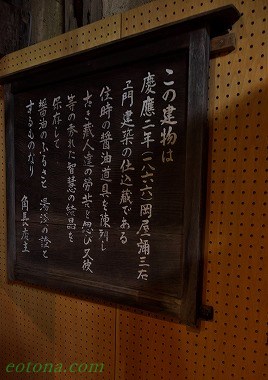 この建物は
慶應二年(一八六六)岡屋彌三右
ヱ門建築の仕込蔵である
往時の醤油道具を陳列し
古き蔵人達の労苦を忍び又彼
等の秀れた智慧の結晶を
保存して
醤油のふるさと 湯浅の證と
するものなり
角長店主
eotona.com